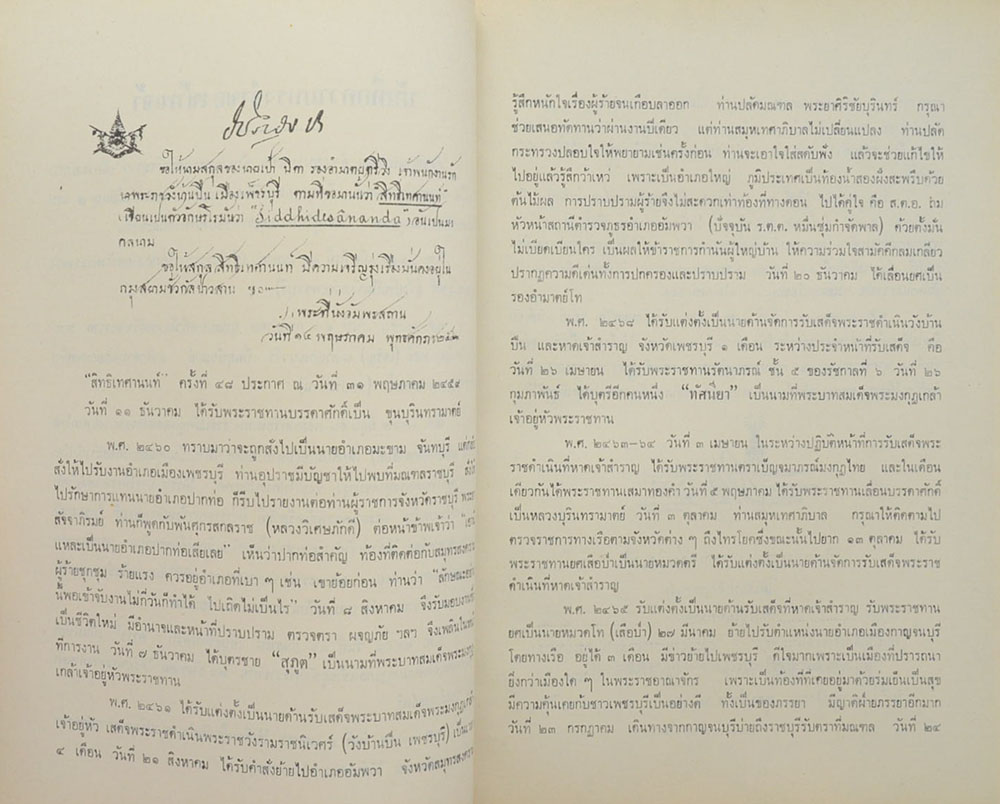 ขอให้นามสกุลของนายเป้า ปิตา รองอำมาตย์ตรี เจ้าพนักงานรัก
เขียนเป็นตัวอักษรโรมันว่า "Siddhidesananda" อันเป็นมง
คลนาม
ขอให้สกุลสิทธิเทศานนท์ มีความเจริญรุ่งเรืองมั่นคงอยู่ใน
กรุงสยามชั่วกัลปาวสาน
พระที่นั่งอัมพรสถาน
วันที่ ๑๔ พฤษภาคม พุทธศักราช ๒๔๕
"สิทธิเทศานนท์" ครั้งที่ ๔๘ ประกาศ ณ วันที่ ๓๑ พฤษภาคม ๒๔๕๙
วันที่ ๑๑ ธันวาคม ได้รับพระราชทานบรรดาศักดิ์เป็น ขุนบุรินทรามาตย์
พ.ศ. ๒๔๖๐ ทราบมาว่าจะถูกส่งไปเป็นนายอำเภอมะขาม จันทบุรี
สั่งให้ไปรับงานอำเภอเมืองเพชรบุรี ท่านอุปราชมีบัญชาให้ไปพบที่มณฑลราชบุรี
ไปรักษาการแทนนายอำเภอปากท่อ ก็รีบไปรายงานต่อท่านผู้ราชการจังหวัดราชบุรี
สัจจาภิรมย์ ท่านก็พูดกับพัศกรสกลราช (หลวงวิเศษภักดี) ต่อหน้าข้าพเจ้าว่า
แหละเป็นนายอำเภอปากท่อเสียเลย" เห็นว่าปากท่อสำคัญ ท้องที่ติดต่อกับสมุทรสงคราม
ผู้ร้ายชุกชุม ร้ายแรง ควรอยู่อำเภอที่เบา ๆ เช่น เขาย้อยก่อน ท่านว่า
นี้พอเข้าจับงานไม่กี่วันก็ทำได้ ไปเถิดไม่เป็นไร" วันที่ ๘ สิงหาคม จึงรับมอบงาน
เป็นชีวิตใหม่ มีอำนาจและหน้าที่ปราบปราม ตรวจตรา ผจญภัย ฯลฯ จึงเพลินในหน้
ที่การงาน วันที่ ๗ ธันวาคม ได้บุตรชาย "สุภูต" เป็นนามที่พระบาทสมเด็จพระมงกุฎ
เกล้าเจ้าอยู่หัวพระราชทาน
พ.ศ. ๒๔๖๑ ได้รับแต่งตั้งเป็นนายด้านรับเสด็จพระบาทสมเด็จพระมงกุฎเกล้า
เจ้าอยู่หัว เสด็จพระราชดำเนินพระราชวังรามราชนิเวศร์ (วังบ้านปืน เพชรบุรี)
๔ เดือน วันที่ ๒๑ สิงหาคม ได้รับคำสั่งย้ายไปอำเภออัมพวา จังหวัดสมุทรสงคราม
รู้สึกหนักใจเรื่องผู้ร้ายจนเกือบลาออก ท่านปลัดมณฑล พระยาศิริชัยบุรินทร์ กรุณา
ช่วยเสนอทัดทานว่าผ่านงานปีเดียว แต่ท่านสมุหเทศาภิบาลไม่เปลี่ยนแปลง ท่านปลัด
กระทรวงปลอบใจให้พยายามเช่นครั้งก่อน ท่านจะเอาใจใส่สดับฟัง แล้วจะช่วยแก้ไขให้
ไปอยู่แล้วรู้สึกว้าเหว่ เพราะเป็นอำเภอใหญ่ ภูมิประเทศเป็นท้องน้ำสองฝั่งสะพรึบด้วย
ต้นไม้ผล การปราบปรามผู้ร้ายจึงไม่สะดวกเท่าท้องที่ทางดอน ไปได้คู่ใจ คือ ส.ต.อ.
หัวหน้าสถานีตำรวจภูธรอำเภออัมพวา (ปัจจุบัน ร.ต.ต. หมื่นชุ่มกำจัดพาล) ด้วยตั้งมั่น
ไม่เบียดเบียนใคร เป็นผลให้ข้าราชการกำนันผู้ใหญ่บ้าน ให้ความร่วมใจสามัคคีกลมเกลียว
ปรากฏความดีเด่นทั้งการปกครองและปราบปราม วันที่ ๒๐ ธันวาคม ได้เลื่อนยศเป็น
รองอำมาตย์โท
พ.ศ. ๒๔๖๘ ได้รับแต่งตั้งเป็นนายด้านจัดการรับเสด็จพระราชดำเนินวังบ้าน
ปืน และหาดเจ้าสำราญ จังหวัดเพชรบุรี ๑ เดือน ระหว่างประจำหน้าที่รับเสด็จ คือ
วันที่ ๒๖ เมษายน ได้รับพระราชทานรัตนาภรณ์ ชั้น ๕ ของรัชกาลที่ ๖ วันที่ ๒๖
กุมภาพันธ์ ได้บุตรีอีกคนหนึ่ง "ทัศนียา" เป็นนามที่พระบาทสมเด็จพระมงกุฎเกล้า
เจ้าอยู่หัวพระราชทาน
พ.ศ. ๒๔๖๓-๖๔ วันที่ ๓ เมษายน ในระหว่างปฏิบัติหน้าที่การรับเสด็จพระ
ราชดำเนินที่หาดเจ้าสำราญ ได้รับพระราชทานตราเบ็ญจมาภรณ์มงกุฎไทย และในเดือน
เดียวกันได้พระราชทานเสมาทองคำ วันที่ ๕ พฤษภาคม ได้รับพระราชทานเลื่อนบรรดาศักดิ์
เป็นหลวงบุรินทรามาตย์ วันที่ ๓ ตุลาคม ท่านสมุหเทศาภิบาล กรุณาให้ติดตามไป
ตรวจราชการทางเรือตามจังหวัดต่าง ๆ ถึงไทรโยคซึ่งขณะนั้นไปยาก ๑๓ ตุลาคม ได้รับ
พระราชทานยศเสือป่าเป็นนายหมวดตรี ได้รับแต่งตั้งเป็นนายด้านจัดการรับเสด็จพระราช
ดำเนินที่หาดเจ้าสำราญ
พ.ศ. ๒๔๖๕ รับแต่งตั้งเป็นนายด้านรับเสด็จที่หาดเจ้าสำราญ รับพระราชทาน
ยศเป็นนายหมวดโท (เสือป่า) ๒๗ มีนาคม ย้ายไปรับตำแหน่งนายอำเภอเมืองกาญจนบุรี
โดยทางเรือ อยู่ได้ ๓ เดือน มีข่าวย้ายไปเพชรบุรี ดีใจมากเพราะเป็นเมืองที่ปรารถนา
ยิ่งกว่าเมืองใด ๆ ในพระราชอาณาจักร เพราะเป็นท้องที่ที่เคยอยู่มาด้วยร่มเย็นเป็นสุข
มีความคุ้นเคยกับชาวเพชรบุรีเป็นอย่างดี ทั้งเป็นของภรรยา มีญาติฝ่ายภรรยาอีกมาก
วันที่ ๒๓ กรกฎาคม เดินทางจากกาญจนบุรีบ่ายถึงราชบุรีรับตราที่มณฑล วันที่ ๒๔